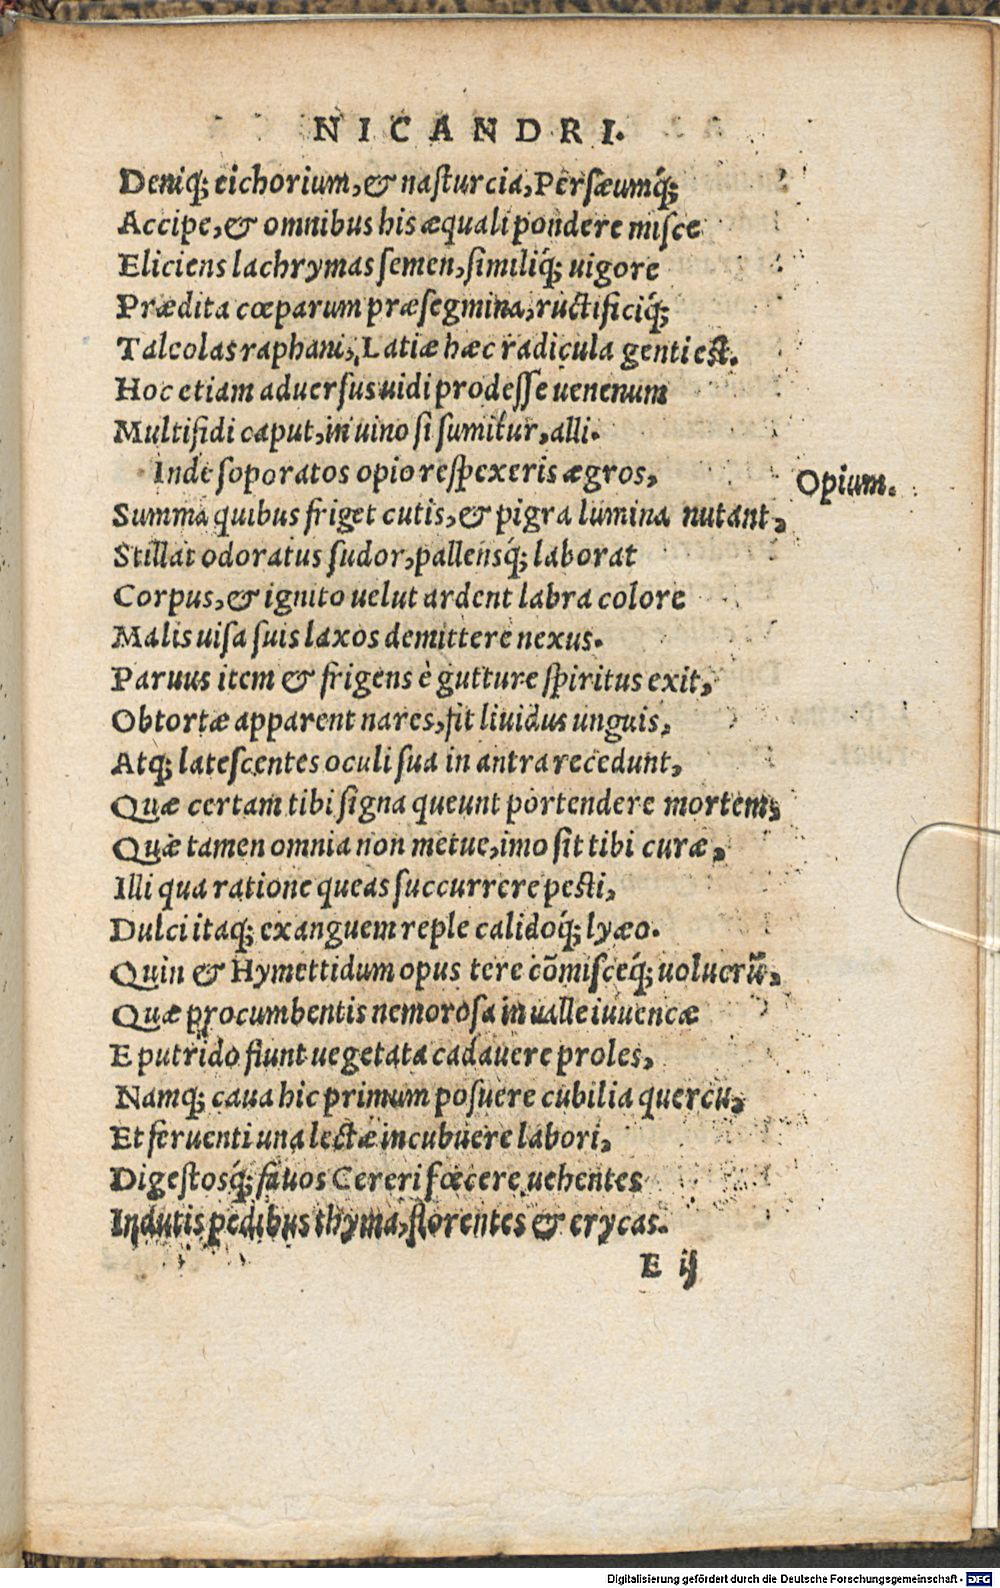 NICANDRI.
Deniq; cichorium, & nasturcia, Persæumq́;
Accipe, & omnibus his æquali pondere misce
Eliciens lachrymas semen, similiq́; uigore
Prædita cœparum præsegmina, ructificiq́;
Taleolas raphani, Latiæ hæc radicula genti est.
Hoc etiam aduersus uidi prodesse uenenum
Multifidi caput, in uino si sumitur, alli.
Inde soporatos opio respexeris ægros,
Opium.
Summa quibus friget cutis, & pigra lumina nutant,
Stillat odoratus sudor, pallensq́; laborat
Corpus, & ignito uelut ardent labra colore
Malis uisa suis laxos demittere nexus.
Paruus item & frigens è gutture spiritus exit,
Obtortæ apparent nares, fit liuidus unguis,
Atq; latescentes oculi sua in antra recedunt,
Quæ certam tibi signa queunt portendere mortem,
Quæ tamen omnia non metue, imo sit tibi curæ,
Illi qua ratione queas succurrere pesti,
Dulci itaq; exanguem reple calidoq́; lyæo.
Quin & Hymettidum opus tere cõmisceq́; uolucrũ,
Quæ procumbentis nemorosa in ualle iuuencæ
E putrido fiunt uegetata cadauere proles,
Namq; caua hic primum posuere cubilia quercu,
Et feruenti una lectæ incubuere labori,
Digestosq́; fauos Cereri fœcere uehentes
Indutis pedibus thyma, florentes & erycas.
E ij
Digitalisierung gefördert durch die Deutsche Forschungsgemeinschaft - DFG